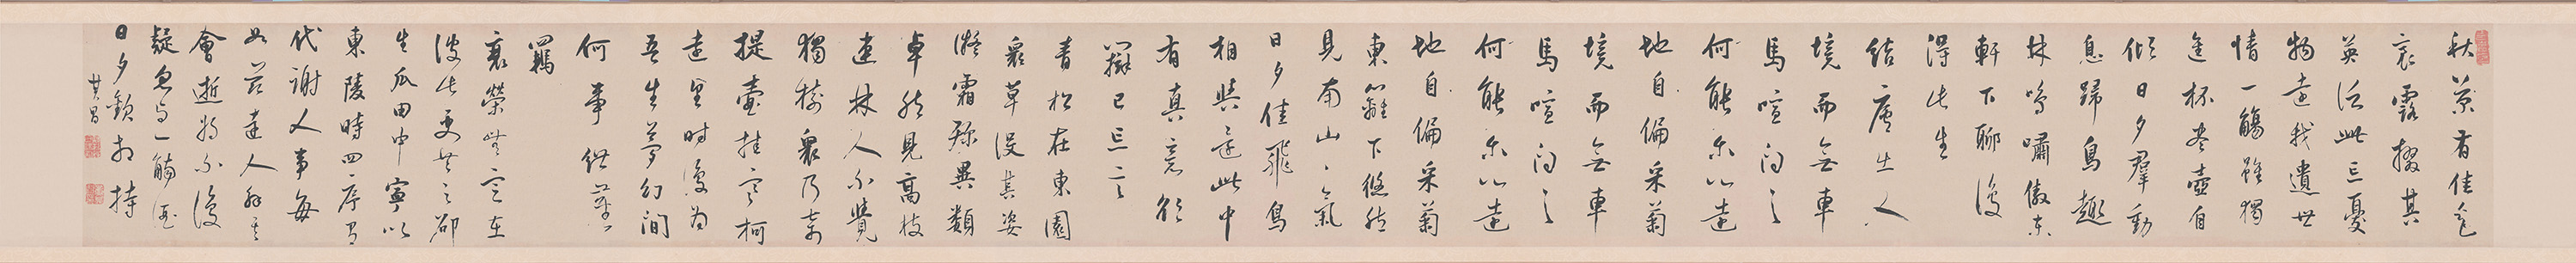 秋菊有佳色
裛露掇其
英泛此忘憂
物遠我遺世
情一觴雖獨
進杯盡壺自
傾日夕群動
息歸鳥趨
林鳴嘯傲東
軒下聊復
得此生
結廬在人
境而無車
馬喧問君
何能尔心遠
地自偏采菊
境而無車
馬喧問君
何能尔心遠
地自偏采菊
東籬下悠然
見南山々氣
日夕佳飛鳥
相與還此中
有真意欲
辯已忘言
青松在東園
衆草没其姿
凝霜殄異類
卓然見高枝
連林人不覺
獨樹衆乃奇
提壺挂寒柯
遠望時復為
吾生夢幻間
何事紲塵
羈
衰榮無定在
彼此更共之邵
生瓜田中寧似
東陵時四序有
代謝人事每
如茲達人解其
會逝將不復
疑忽与一觴酒
日夕歡相持
其昌